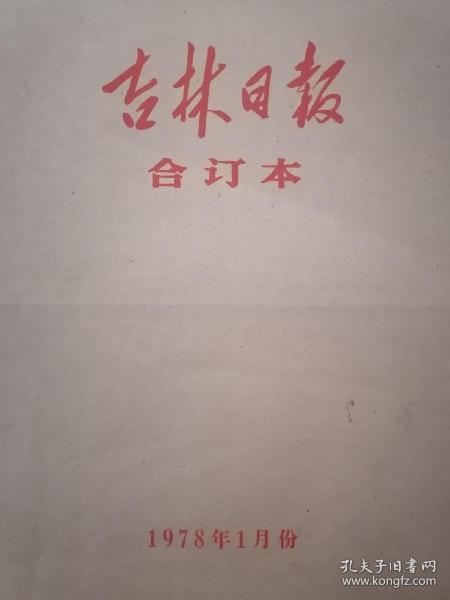 吉林日报
合订本
1978年1月份
孔夫子旧书网
www.kongfz.com